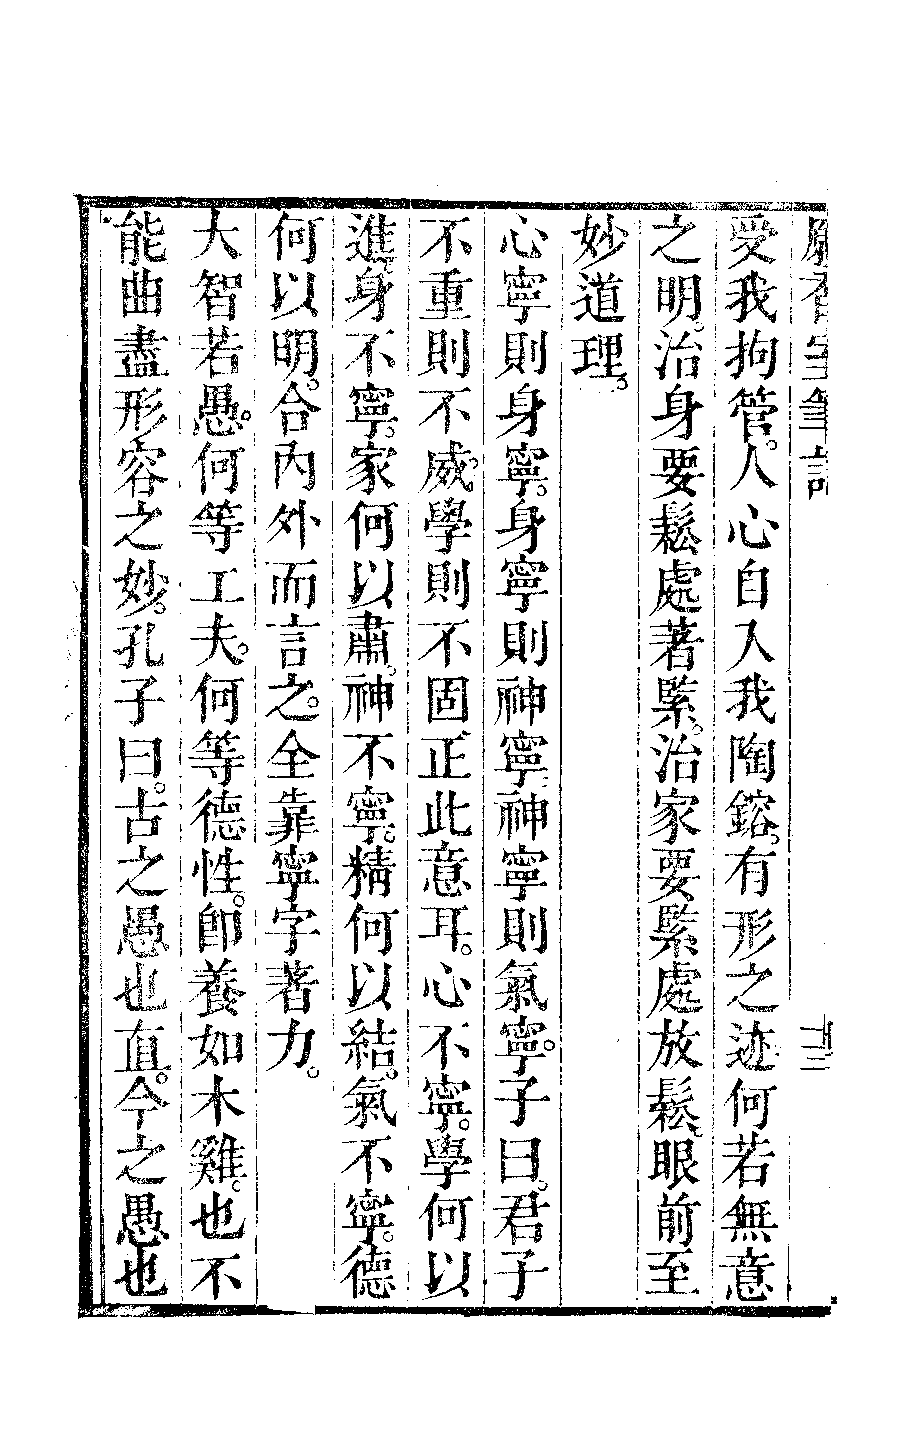 受我拘管。人心自入我陶鎔。有形之迹何若無意
之明。治身要鬆處著緊。治家要緊處放鬆。眼前至
妙道理。
心寧則身寧。身寧則神寧神寧則氣寧。子曰。君子
不重則不威。學則不固正此意耳。心不寧。學何以
進。身不寧。家何以肅。神不寧。精何以結。氣不寧。德
何以明。合內外而言之。全靠寧字著力。
大智若愚。何等工夫。何等德性。卽養如木雞。也不
能曲盡形容之妙。孔子曰。古之愚也直。今之愚也